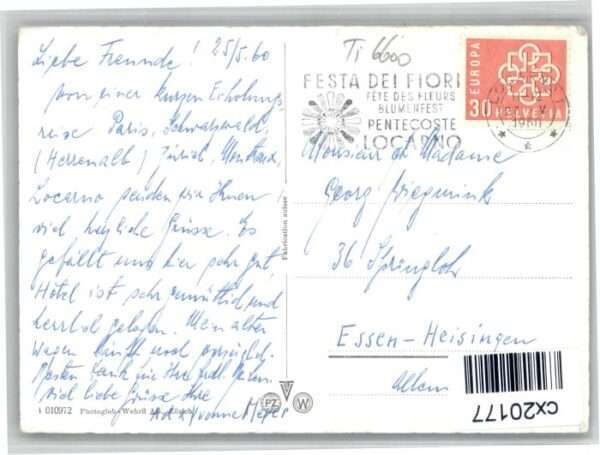 Liebe Freunde! 25/5.60
von einer kurzen Erholungs
reise Paris, Schwarzwald,
(Herrenalb) Zürich, Montreux,
Locarno senden wir Ihnen
viel herzliche Grüsse. Es
gefällt uns hier sehr gut,
Hotel ist sehr gemütlich und
herrlich gelegen. Mein alter
Wagen läuft noch vorzügl.
Besten Dank für Ihre
viel liebe Grüsse Ihre
Yvonne Meyer
1 010972 Photoglob-Wehrli AG, Zürich
PZ W
Fabrication suisse
Ti 6600
FESTA DEI FIORI
FÊTE DES FLEURS
BLUMENFEST
PENTECOSTE
LOCARNO
EUROPA
30 HELVETIA
1960
Monsieur et Madame
Georg
36 Springloh
Essen-Heisingen
Allem
cx20177